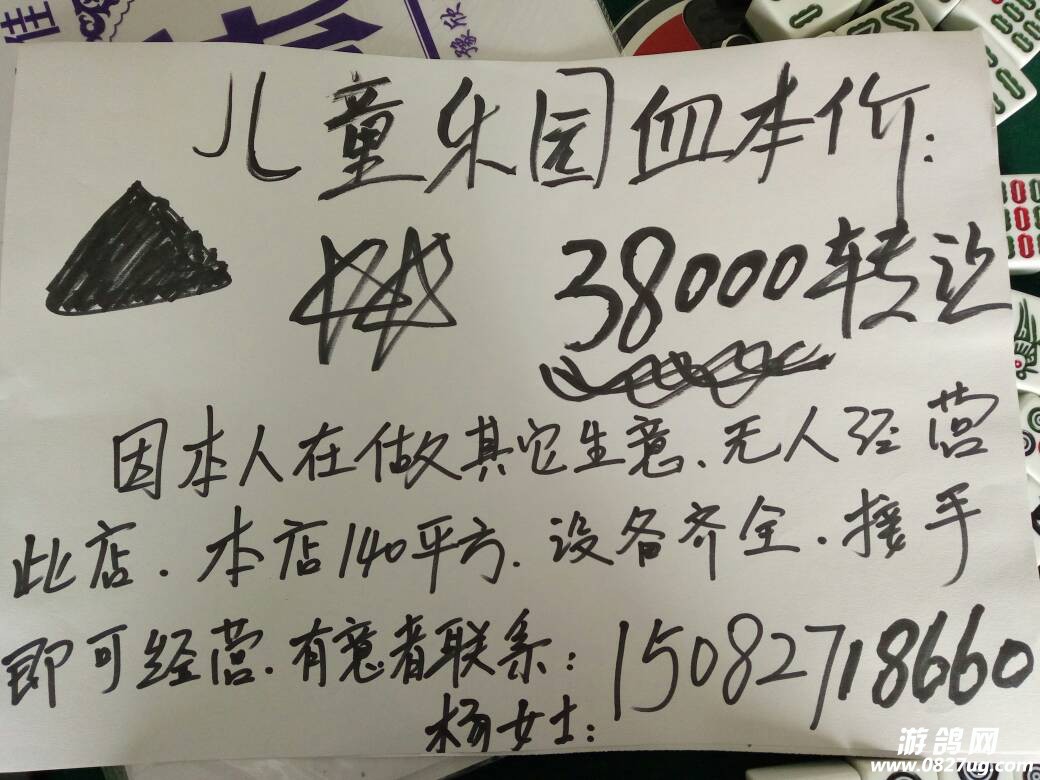 佳
豫欣
儿童乐园血本价:
38000转让
因本人在做其它生意、无人经营
此店.本店140平方.设备齐全.接手
即可经营.有意者联系:15082718660
杨女士:
游鸽网
www.0827ug.com